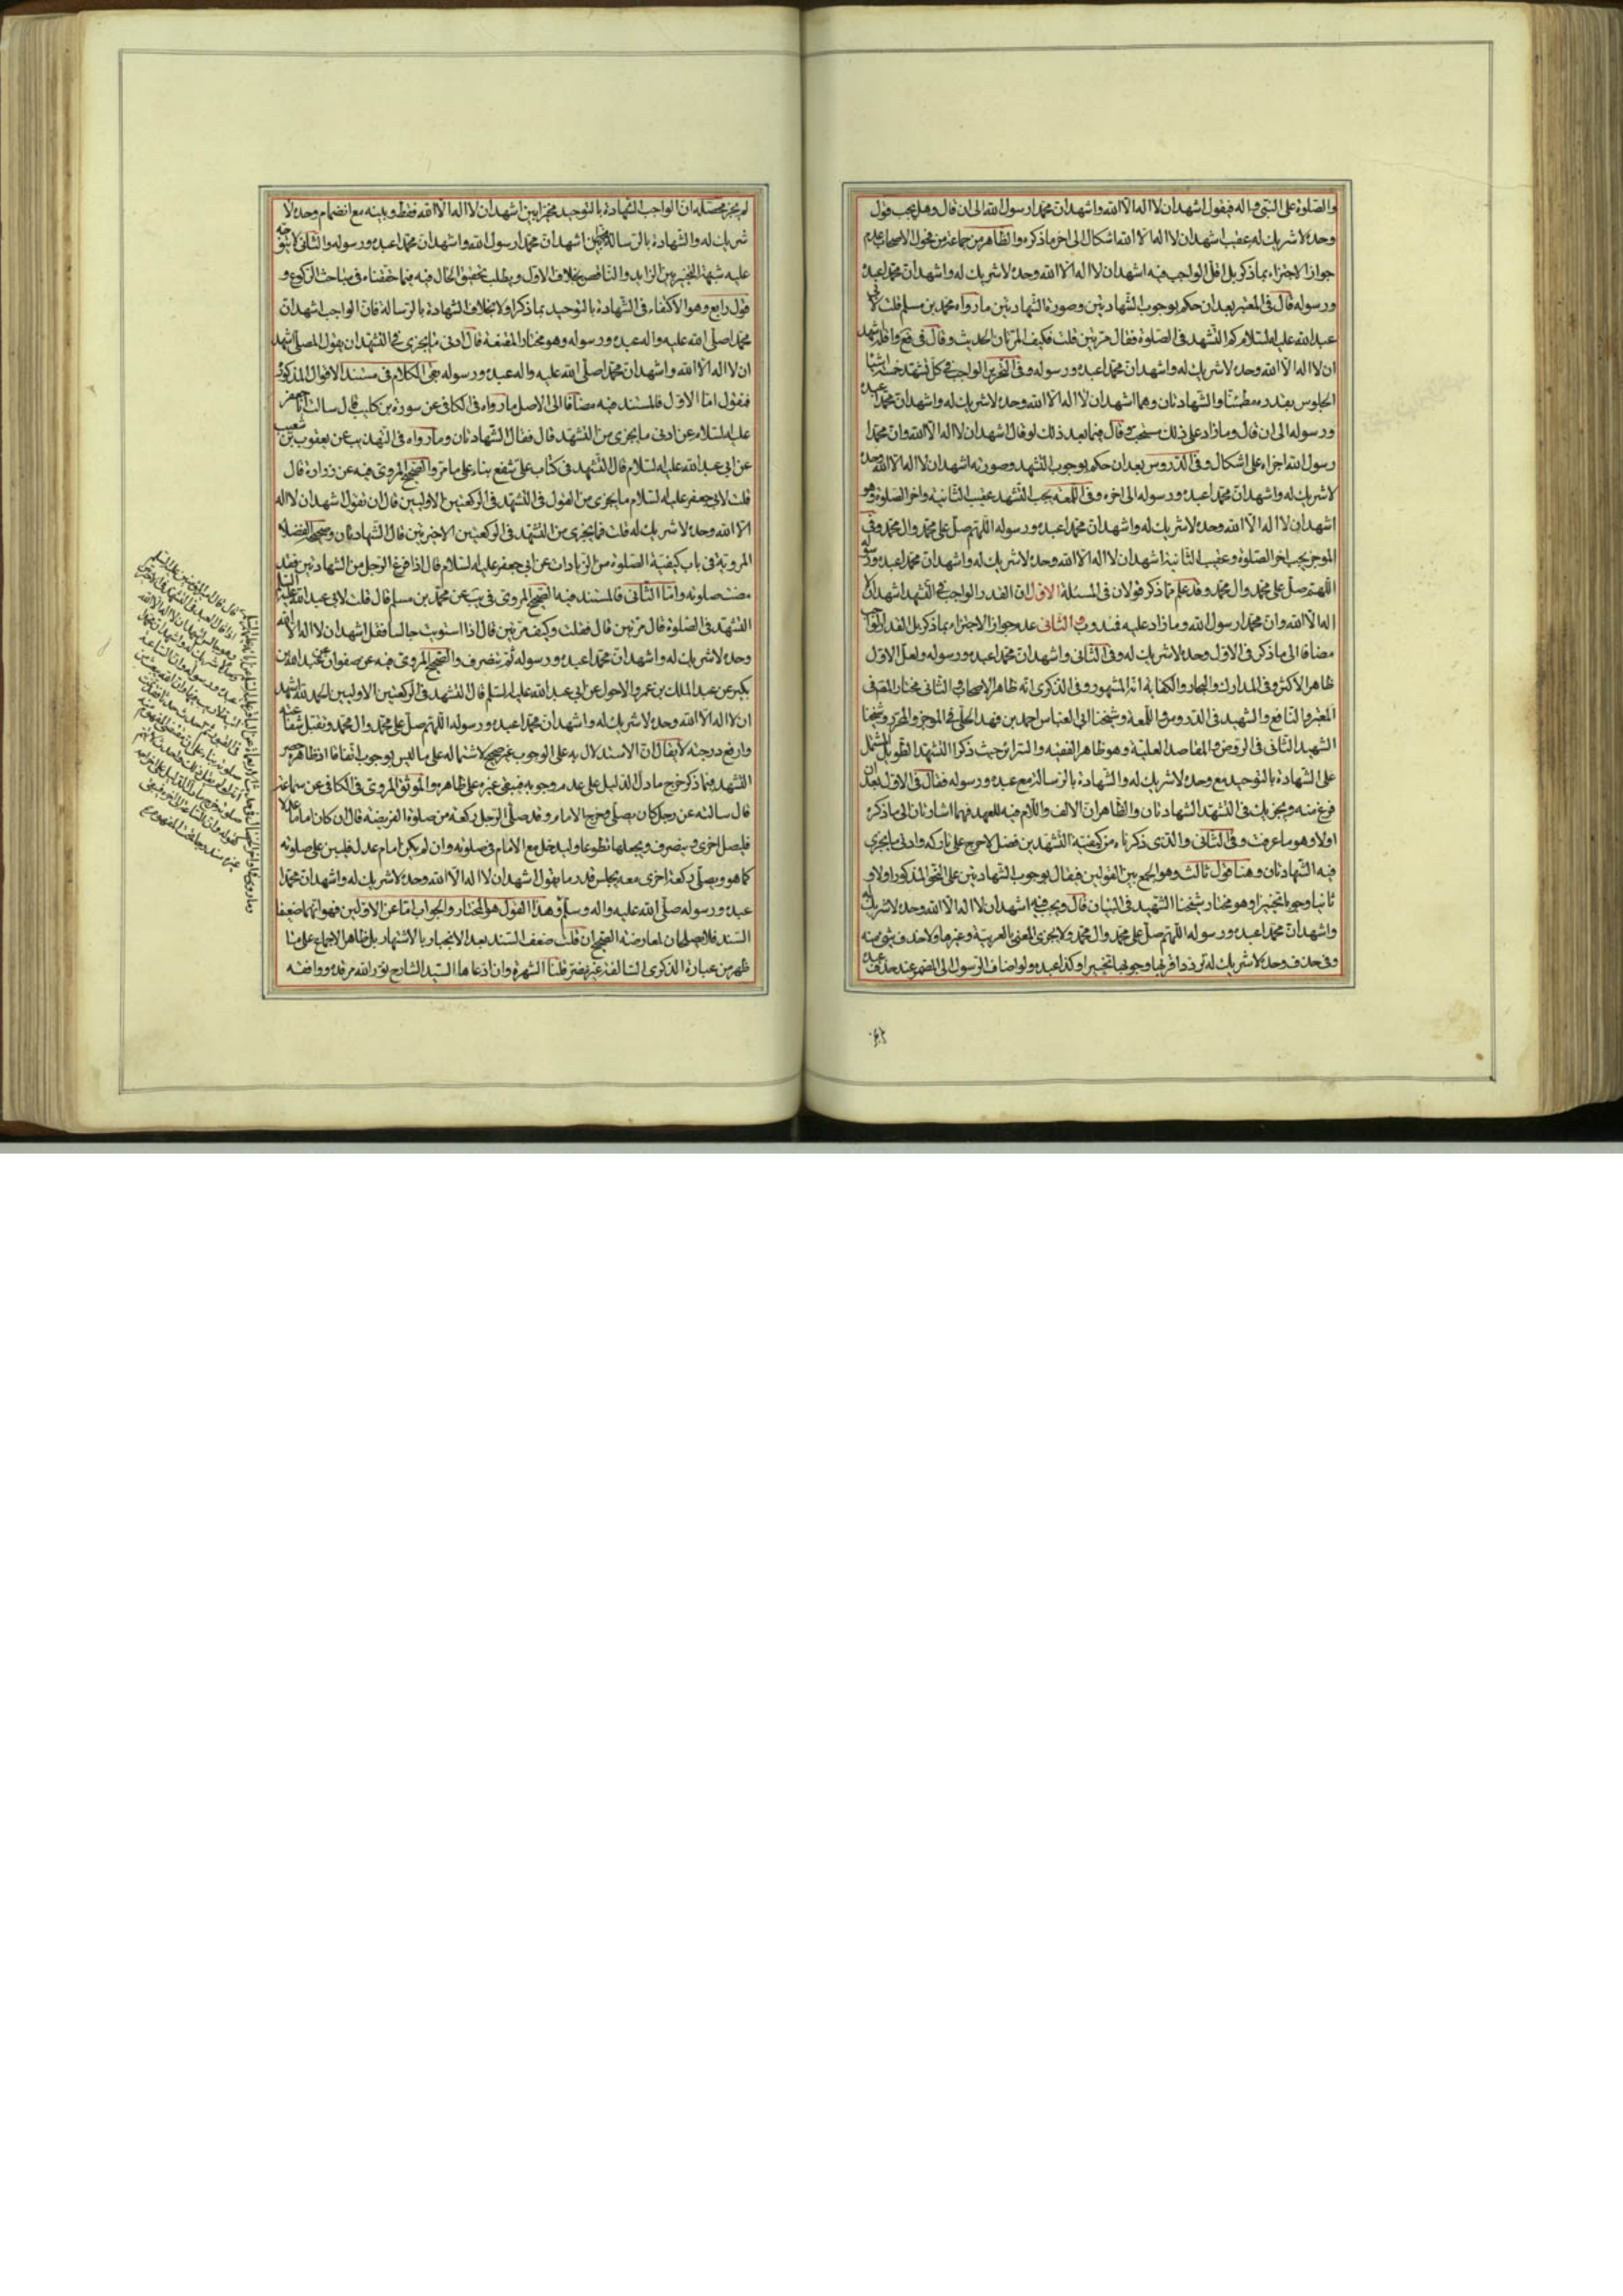 والصلوة على النبى واله فيقول اشهد ان لا اله الا الله واشهد ان محمدا رسول الله الى ان قال وهل يجب قول
وحده لا شريك له عقيب اشهد ان لا اله الا الله اشكال الى اخر ما ذكره والظاهر من جماعة من فحول الاصحاب عدم
جواز الاجتزاء بما ذكر بل اقل الواجب فيه اشهد ان لا اله الا الله وحده لا شريك له واشهد ان محمدا عبده
ورسوله قال فى المعتبر بعد ان حكم بوجوب الشهادتين وصورة الشهادتين ما رواه محمد بن مسلم قلت لابى
عبد الله عليه السلام كم التشهد فى الصلوة فقال مرتين قلت فكيف المرتان الحديث وقال فى فع واقله اشهد
ان لا اله الا الله وحده لا شريك له واشهد ان محمدا عبده ورسوله وفى التحرير الواجب فى كل تشهد خمسة اشياء
الجلوس بقدره مطمئنا والشهادتان وهما اشهد ان لا اله الا الله وحده لا شريك له واشهد ان محمدا عبده
ورسوله الى ان قال وما زاد على ذلك مستحب وقال فيما بعد ذلك لو قال اشهد ان لا اله الا الله وان محمدا
رسول الله اجزاء على اشكال وفى الدروس بعد ان حكم بوجوب التشهد وصورته اشهد ان لا اله الا الله وحده
لا شريك له واشهد ان محمدا عبده ورسوله الى اخره وفى اللمعة يجب التشهد عقيب الثانية واخر الصلوة وهو
اشهد ان لا اله الا الله وحده لا شريك له واشهد ان محمدا عبده ورسوله اللهم صل على محمد وال محمد وفى
الموجز يجب اخر الصلوة وعقيب الثانية اشهد ان لا اله الا الله وحده لا شريك له واشهد ان محمدا عبده ورسوله
اللهم صل على محمد وال محمد وقد علم مما ذكر قولان فى المسئلة الاول ان القدر الواجب فى التشهد اشهد ان لا
اله الا الله وان محمدا رسول الله وما زاد عليه فمندوب والثانى عدم جواز الاجتزاء بما ذكر بل القدر الواجب
مضافا الى ما ذكر فى الاول وحده لا شريك له وفى الثانى واشهد ان محمدا عبده ورسوله ولعل الاول
ظاهر الاكثر وفى المدارك والبحار والكفاية انه المشهور وفى الذكرى انه ظاهر الاصحاب والثانى مختار المص فى
المعتبر والنافع والشهيد فى الدروس واللمعة وشيخنا ابى العباس احمد بن فهد الحلى فى الموجز والمحرر وشيخنا
الشهيد الثانى فى الروض والمقاصد العلية وهو ظاهر الفقيه والسرائر حيث ذكرا التشهد الطويل المشتمل
على الشهادة بالتوحيد مع وحده لا شريك له والشهادة بالرسالة مع عبده ورسوله فقال فى الاول بعد ان
فرغ منه ويجزيك فى التشهد الشهادتان والظاهر ان الالف واللام فيه للعهد فهما اشارتان الى ما ذكره
اولا وهو ما عرفت وفى الثانى والذى ذكرناه من كيفية التشهدين فضل لا حرج على تاركه وادنى ما يجزى
فيه الشهادتان وهنا قول ثالث وهو الجمع بين القولين فيقال بوجوب الشهادتين على النحو المذكور اولا و
ثانيا وجوبا تخييرا وهو مختار شيخنا الشهيد فى البيان قال ويجب فيه اشهد ان لا اله الا الله وحده لا شريك له
واشهد ان محمدا عبده ورسوله اللهم صل على محمد وال محمد ولا يجزى المعنى بالعربية وغيرها ولا حذف شئ منه
وفى حذف وحده لا شريك له تردد اقربها وجوبها تخييرا وكذا عبده ولو اضاف الرسول الى المضمر عند حذف عبده
لم يجز محصله ان الواجب الشهادة بالتوحيد مخيرا بين اشهد ان لا اله الا الله فقط وبينه مع انضمام وحده لا
شريك له والشهادة بالرسالة مخيرا بين اشهد ان محمدا رسول الله واشهد ان محمدا عبده ورسوله والثانى لا يتوجه
عليه شبهة التخيير بين الزايد والناقص بخلاف الاول ويطلب تحقيق الحال فيه فيما حققناه فى مباحث الركوع و
قول رابع وهو الاكتفاء فى الشهادة بالتوحيد بما ذكر اولا بخلاف الشهادة بالرسالة فان الواجب اشهد ان
محمدا صلى الله عليه واله عبده ورسوله وهو مختار المقنعة قال ادنى ما يجزى فى التشهد ان يقول المصلى اشهد
ان لا اله الا الله واشهد ان محمدا صلى الله عليه واله عبده ورسوله بقى الكلام فى مستند الاقوال المذكورة
فنقول اما الاول فالمستند فيه مضافا الى الاصل ما رواه فى الكافى عن سورة بن كليب قال سالت ابا جعفر
عليه السلام عن ادنى ما يجزى من التشهد قال فقال الشهادتان وما رواه فى التهذيب عن يعقوب بن شعيب
عن ابى عبد الله عليه السلام قال التشهد فى كتاب على شفع بناء على ما مر والصحيح المروى فيه عن زرارة قال
قلت لابى جعفر عليه السلام ما يجزى من القول فى التشهد فى الركعتين الاوليين قال ان تقول اشهد ان لا اله
الا الله وحده لا شريك له قلت فما يجزى من التشهد فى الركعتين الاخيرتين قال الشهادتان وصحيحة الفضلا
المروية فى باب كيفية الصلوة من الزيادات عن ابى جعفر عليه السلام قال اذا فرغ الرجل من الشهادتين فقد
مضت صلوته واما الثانى فالمستند فيه الصحيح المروى فى يب عن محمد بن مسلم قال قلت لابى عبد الله عليه السلام
التشهد فى الصلوة قال مرتين قال فقلت وكيف مرتين قال اذا استويت جالسا فقل اشهد ان لا اله الا الله
وحده لا شريك له واشهد ان محمدا عبده ورسوله ثم تنصرف والصحيح المروى فيه عن صفوان عن عبد الله بن
بكير عن عبد الملك بن عمرو الاحول عن ابى عبد الله عليه السلام قال التشهد فى الركعتين الاوليين الحمد لله اشهد
ان لا اله الا الله وحده لا شريك له واشهد ان محمدا عبده ورسوله اللهم صل على محمد وال محمد وتقبل شفاعته
وارفع درجته لا يقال ان الاستدلال به على الوجوب غير صحيح لاشتماله على ما ليس بوجوب اتفاقا اذ ظاهره حصر
التشهد فيما ذكر خرج ما دل الدليل على عدم وجوبه فيبقى غيره على ظاهره والموثق المروى فى الكافى عن سماعة
قال سالته عن رجل كان يصلى فخرج الامام وقد صلى الرجل ركعة من صلوة الفريضة قال ان كان اماما عدلا
فليصل اخرى وينصرف ويجعلها تطوعا وليدخل مع الامام فى صلوته وان لم يكن امام عدل فليبن على صلوته
كما هو ويصلى ركعة اخرى معه يجلس قدر ما يقول اشهد ان لا اله الا الله وحده لا شريك له واشهد ان محمدا
عبده ورسوله صلى الله عليه واله وسلم وهذا القول هو المختار والجواب اما عن الاولين فهو انهما ضعيفا
السند فلا يصلحان لمعارضة الصحيح ان قلت ضعف السند بعد الانجبار بالاشتهار بل ظاهر الاجماع على ما
ظهر من عبارة الذكرى السالفة غير مضر قلنا الشهرة وان ادعاها السيد الشارح نور الله مرقده ووافقه